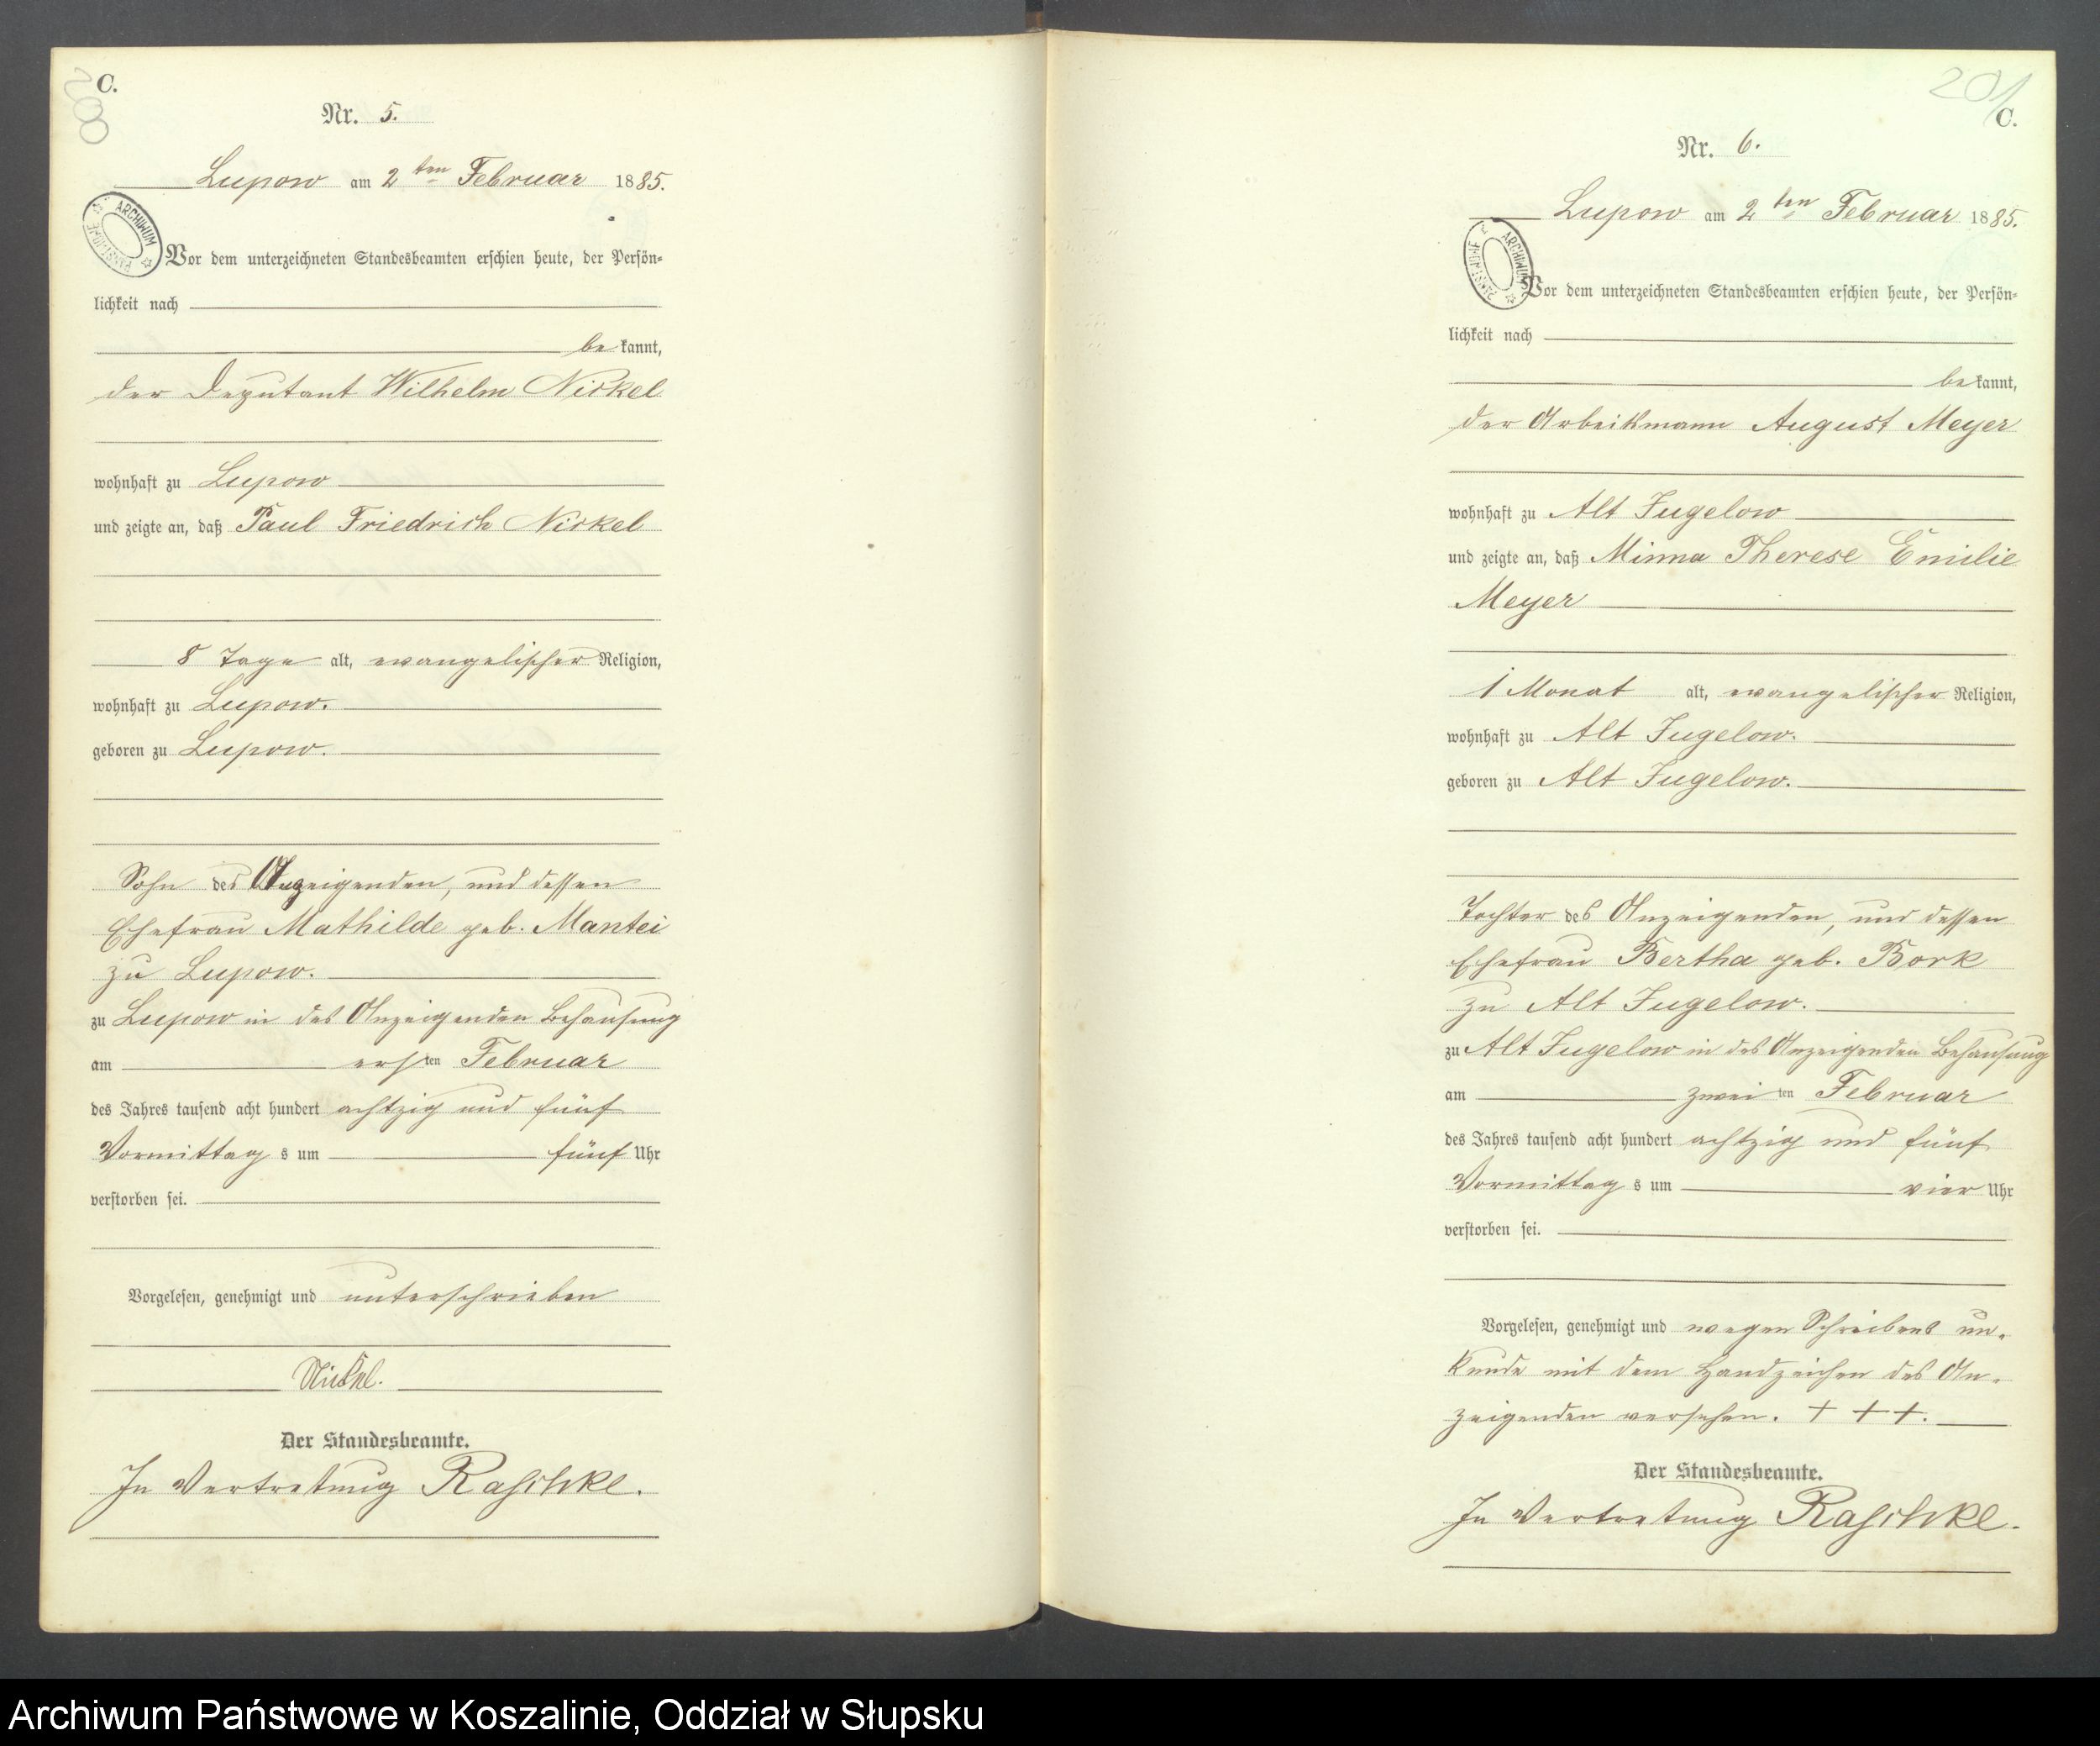 200
C.
Nr. 5.
Lupow am 2ten Februar 1885.
ARCHIWUM PAŃSTWOWE
Vor dem unterzeichneten Standesbeamten erschien heute, der Persön-
lichkeit nach
bekannt,
der Deputant Wilhelm Nickel
wohnhaft zu Lupow
und zeigte an, daß Paul Friedrich Nickel
8 Tage alt, evangelischer Religion,
wohnhaft zu Lupow.
geboren zu Lupow.
Sohn des Anzeigenden, und dessen
Ehefrau Mathilde geb. Mantei
zu Lupow.
zu Lupow in des Anzeigenden Behausung
am ersten Februar
des Jahres tausend acht hundert achtzig und fünf
Vormittags um fünf Uhr
verstorben sei.
Vorgelesen, genehmigt und unterschrieben
Nickel.
Der Standesbeamte.
In Vertretung Raschke.
201
C.
Nr. 6.
Lupow am 2ten Februar 1885.
ARCHIWUM PAŃSTWOWE
Vor dem unterzeichneten Standesbeamten erschien heute, der Persön-
lichkeit nach
bekannt,
der Arbeitsmann August Meyer
wohnhaft zu Alt Jugelow
und zeigte an, daß Minna Therese Emilie
Meyer
1 Monat alt, evangelischer Religion,
wohnhaft zu Alt Jugelow.
geboren zu Alt Jugelow.
Tochter des Anzeigenden, und dessen
Ehefrau Bertha geb. Bork
zu Alt Jugelow.
zu Alt Jugelow in des Anzeigenden Behausung
am zweiten Februar
des Jahres tausend acht hundert achtzig und fünf
Vormittags um vier Uhr
verstorben sei.
Vorgelesen, genehmigt und wegen Schreibens un-
kunde mit dem Handzeichen des An-
zeigenden versehen. + + +.
Der Standesbeamte.
In Vertretung Raschke.
Archiwum Państwowe w Koszalinie, Oddział w Słupsku